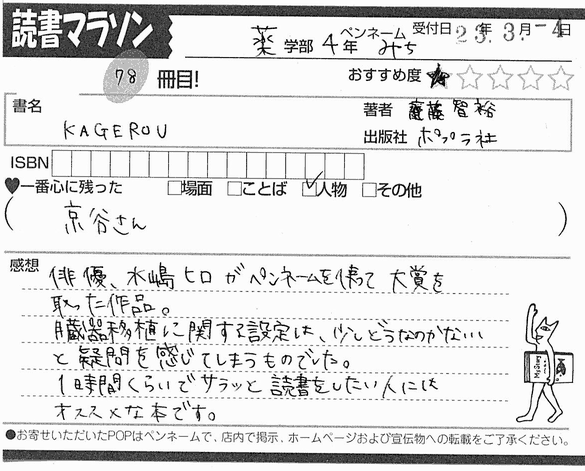 読書マラソン
薬 学部 4 年 ペンネーム みち 受付日 23年 3.月 -4日
78 冊目! おすすめ度 ★☆☆☆☆
書名 KAGEROU
著者 齋藤智裕
出版社 ポプラ社
ISBN
♥一番心に残った □場面 □ことば ☑人物 □その他
( 京谷さん )
感想
俳優、水嶋ヒロがペンネームを使って大賞を
取った作品。
臓器移植に関する設定は、少しどうなのかない
と疑問を感じてしまうものでした。
1時間くらいでサラッと読書をしたい人には
オススメな本です。
●お寄せいただいたPOPはペンネームで、店内で掲示、ホームページおよび宣伝物への転載をご了承ください。